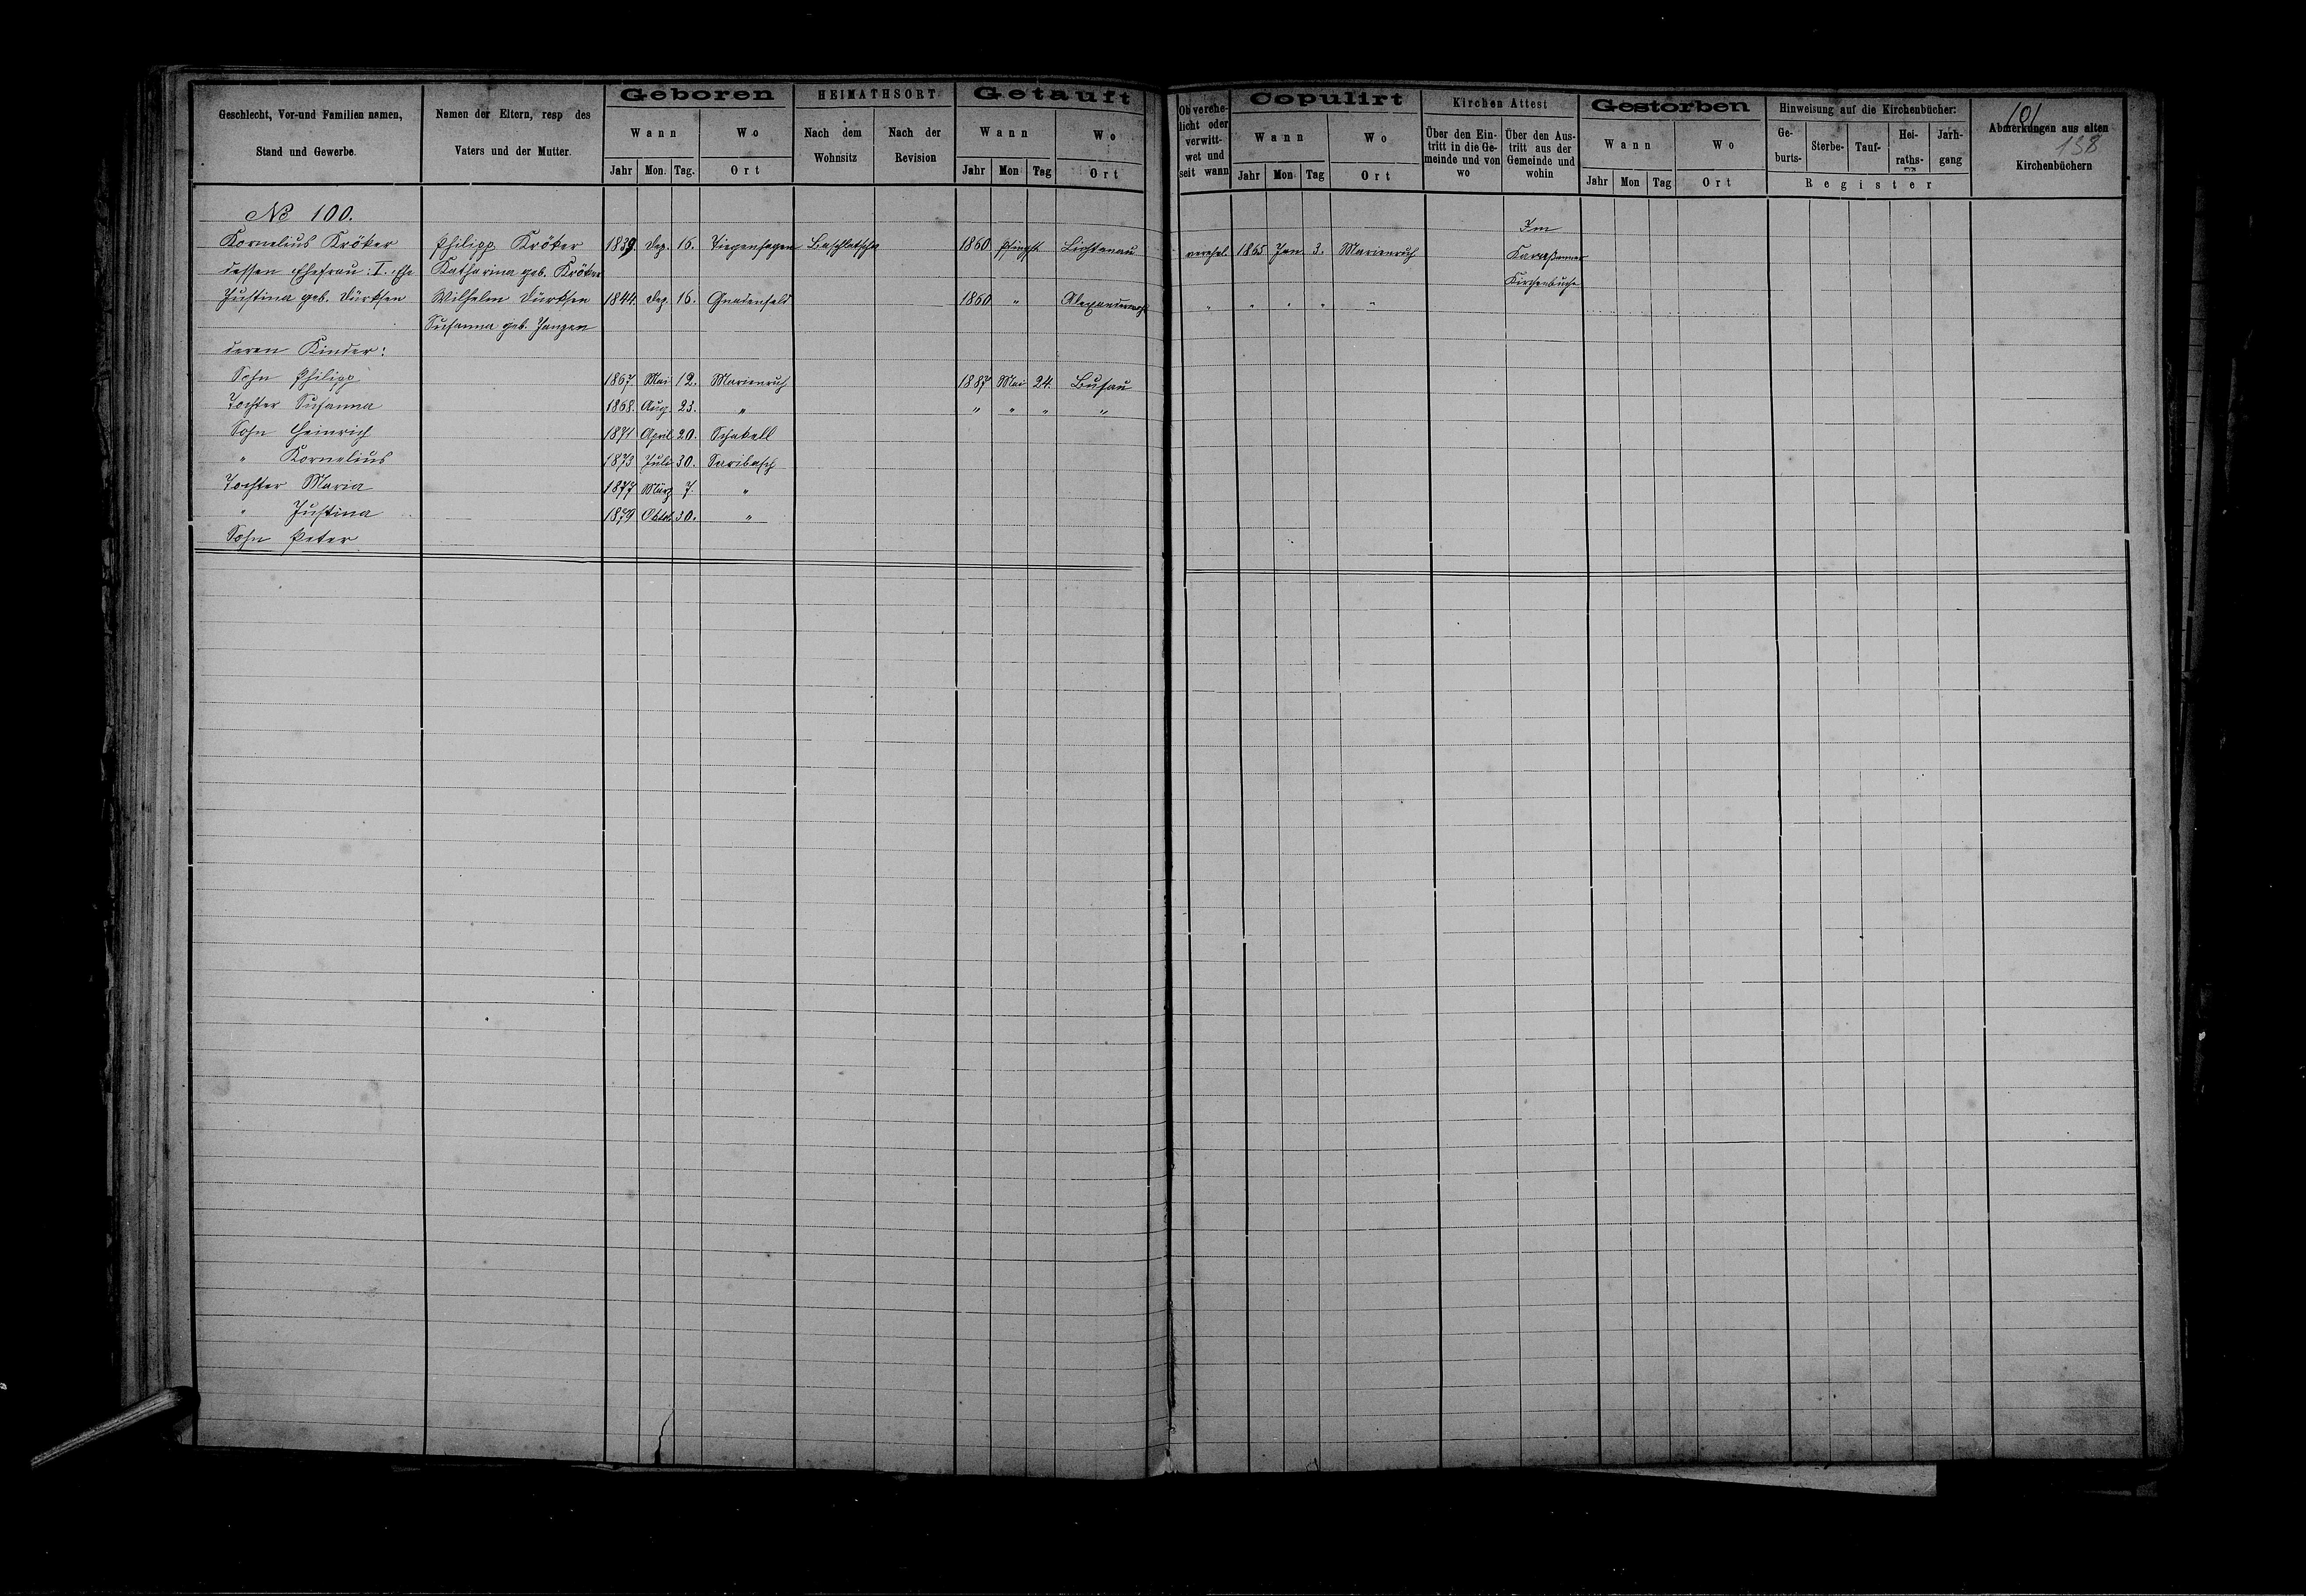 Geboren HEIMATHSORT Getauft Copulirt Kirchen Attest Gestorben Hinweisung auf die Kirchenbücher: 101
Geschlecht, Vor-und Familien namen,
Stand und Gewerbe.
Namen der Eltern, resp des
Vaters und der Mutter.
Wann Wo
Jahr Mon. Tag. Ort
Nach dem
Wohnsitz
Nach der
Revision
Wann Wo
Jahr Mon Tag Ort
Ob verehe-
licht oder
verwitt-
wet und
seit wann
Wann Wo
Jahr Mon Tag Ort
Über den Ein-
tritt in die Ge-
meinde und von
wo
Über den Aus-
tritt aus der
Gemeinde und
wohin
Wann Wo
Jahr Mon Tag Ort
Ge-
burts-
Sterbe-
Tauf-
Hei-
raths-
Jarh-
gang
Register
Abmerkungen aus alten
138
Kirchenbüchern
No 100.
Im
Kornelius Kröker Philipp Kröker 1839 Dez. 16. Tiegenhagen Baschlatscha 1860 Pfingst Lichtenau verehel. 1865 Jan 3. Marienruh
dessen Ehefrau: I. Ehe Katharina geb. Kröker Kirchenbuche
Justina geb. Dürksen Wilhelm Dürksen 1844. Dez. 16. Gnadenfeld 1860 " " " " " "
Susanna geb. Janzen
deren Kinder:
Sohn Philipp 1867. Mai 12. Marienruh 1887 Mai 24. Busau
Tochter Susanna 1868. Aug. 23. " " " " "
Sohn Heinrich 1871 April 20. Schakell
" Kornelius 1873 Juli 30. Saribasch
Tochter Maria 1877 März 7. "
" Justina 1879 Oktob. 30. "
Sohn Peter